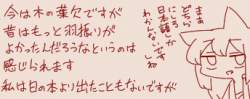 今は木の葉欠ですが
昔はもっと羽振りが
よかったんだろうなというのは
感じられます
私は日の本より出たこともないですが
まあ
どちら
にしろ
日本語しか
わかんないし